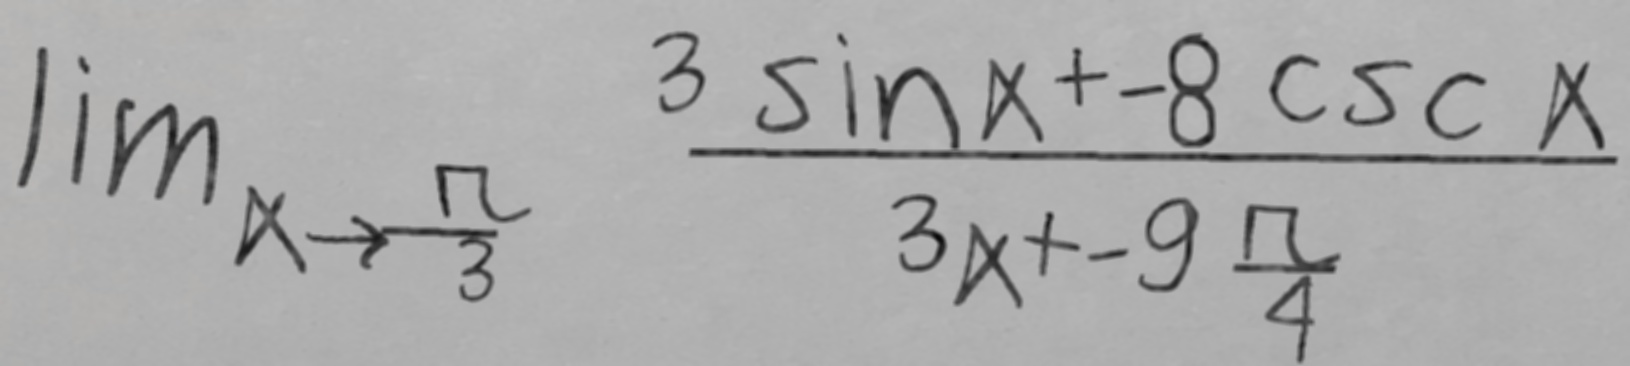 \lim_{x \to \frac{\pi}{3}} \frac{3 \sin x + -8 \csc x}{3x + -9 \frac{\pi}{4}}